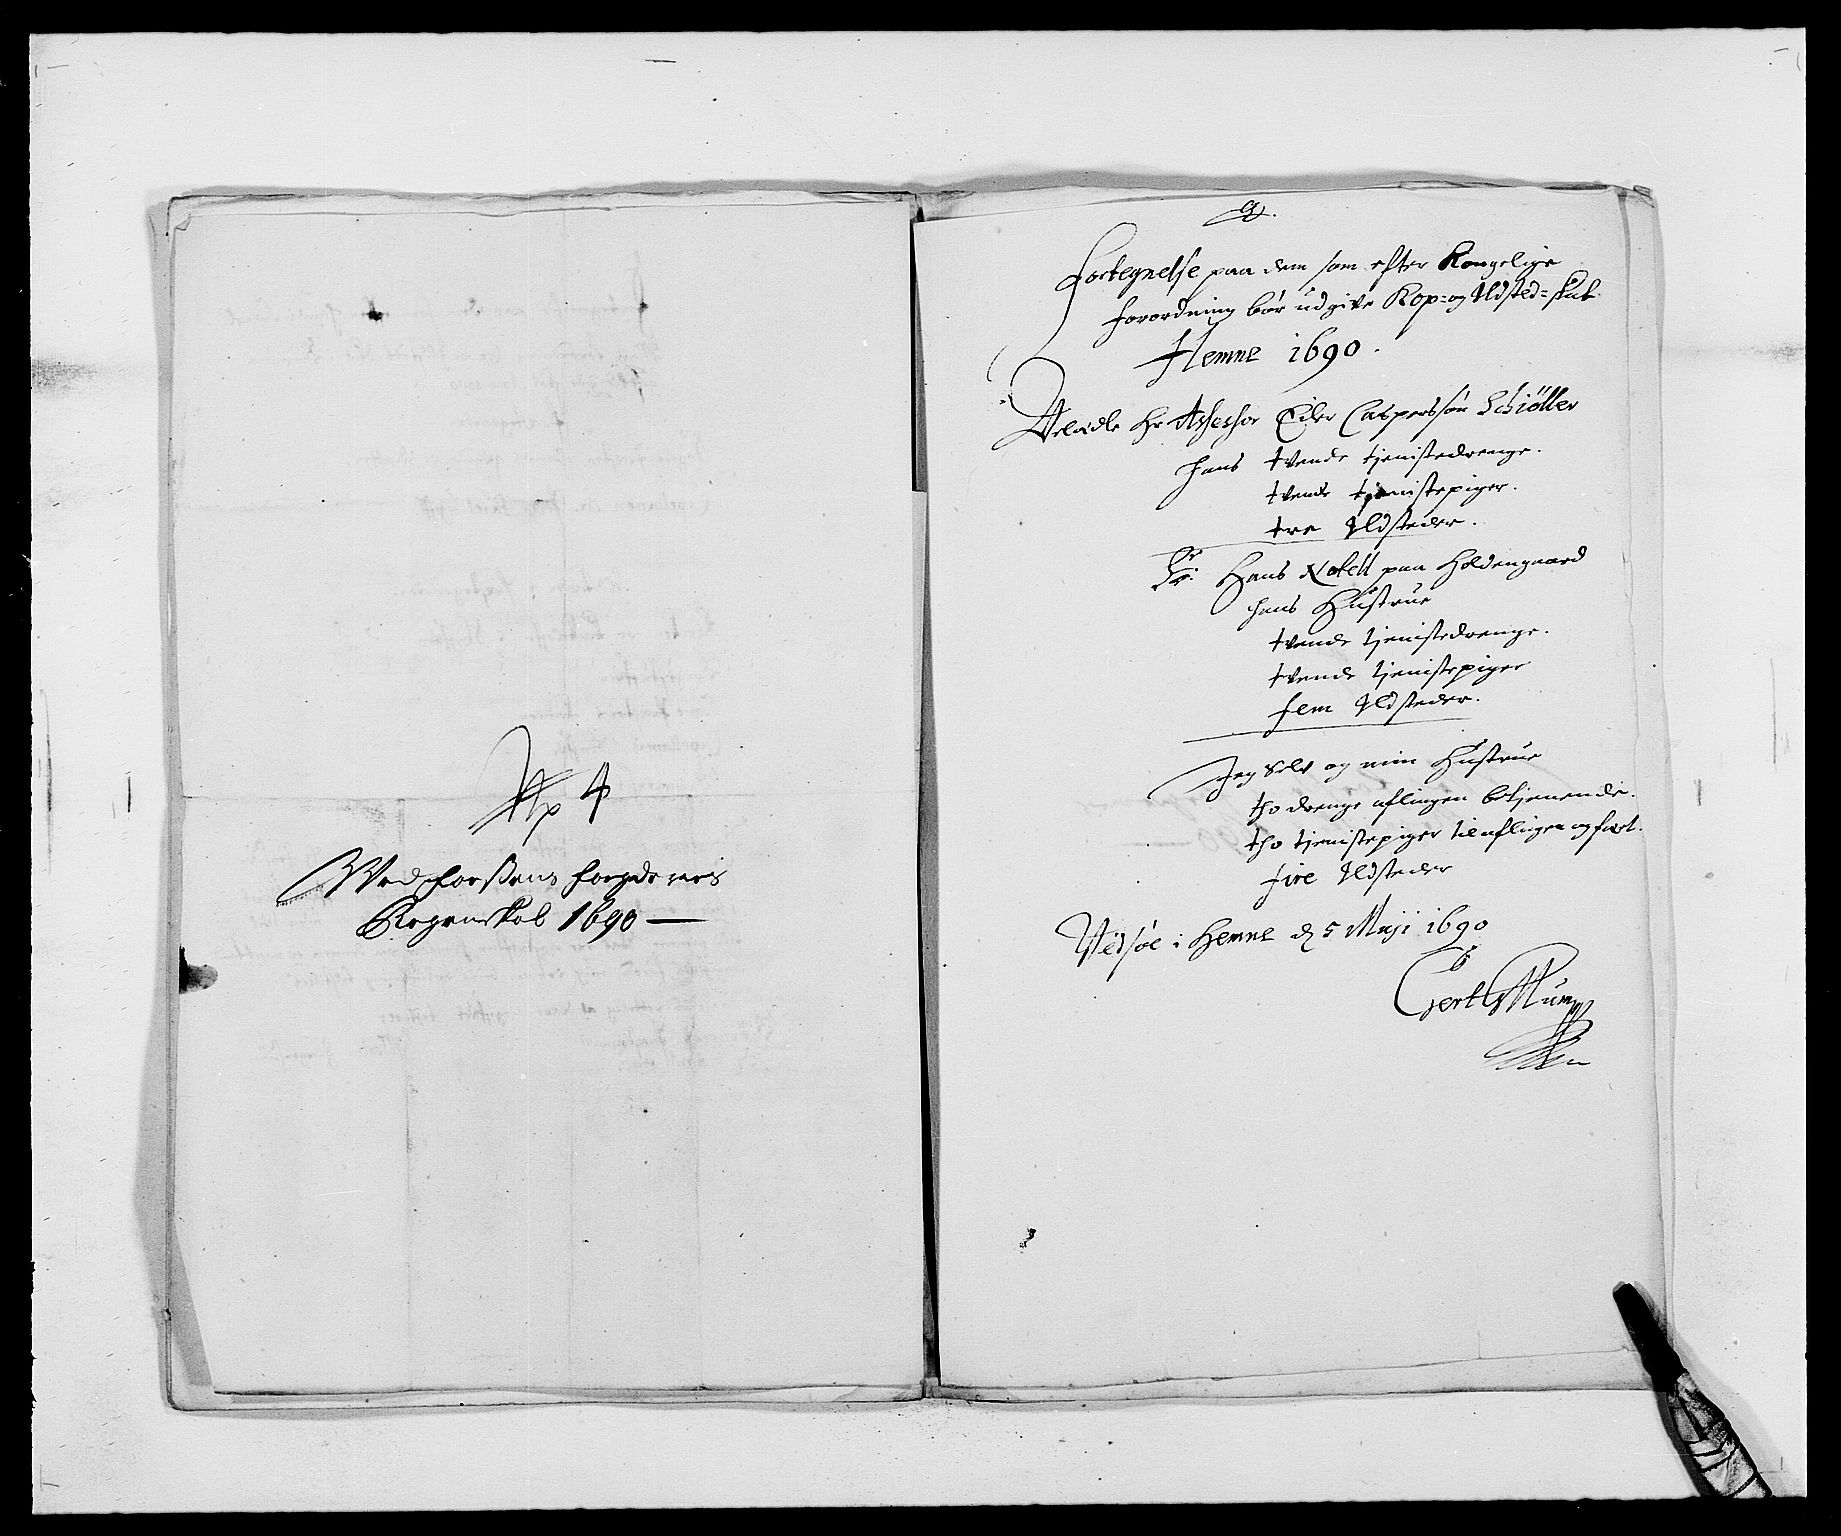 No 4
Wed Forßens fogderies
Regenskab 1690
9.
Fortegnelse paa dem som efter Kongelige
forordning bør udgive Kop= og Ildsted=skat
Hemne 1690.
Velædle Hr Assessor Eiler Casperssøn Schiøller
hans tvende tjenistedrenge.
tvende tjenistepiger.
tre Ildsteder.
Sr: Hans Nobell paa Holdengaard
hans Hustrue
tvende tjenistedrenge.
tvende tjenistepiger
fem Ildsteder.
Jeg Selv og min Hustrue
tho drenge aflingen betjenende.
tho tjenistepiger til aflingen og
fire Ildsteder
i Hemne d 5 Maji 1690
Gert